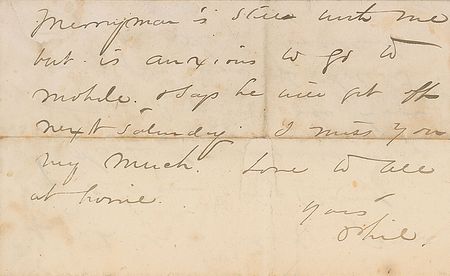 Merryman is still with me
but is anxious to go to
Mobile. Says he will get off
next Saturday. I miss you
very much. Love to all
at home.
Yours
Phil.